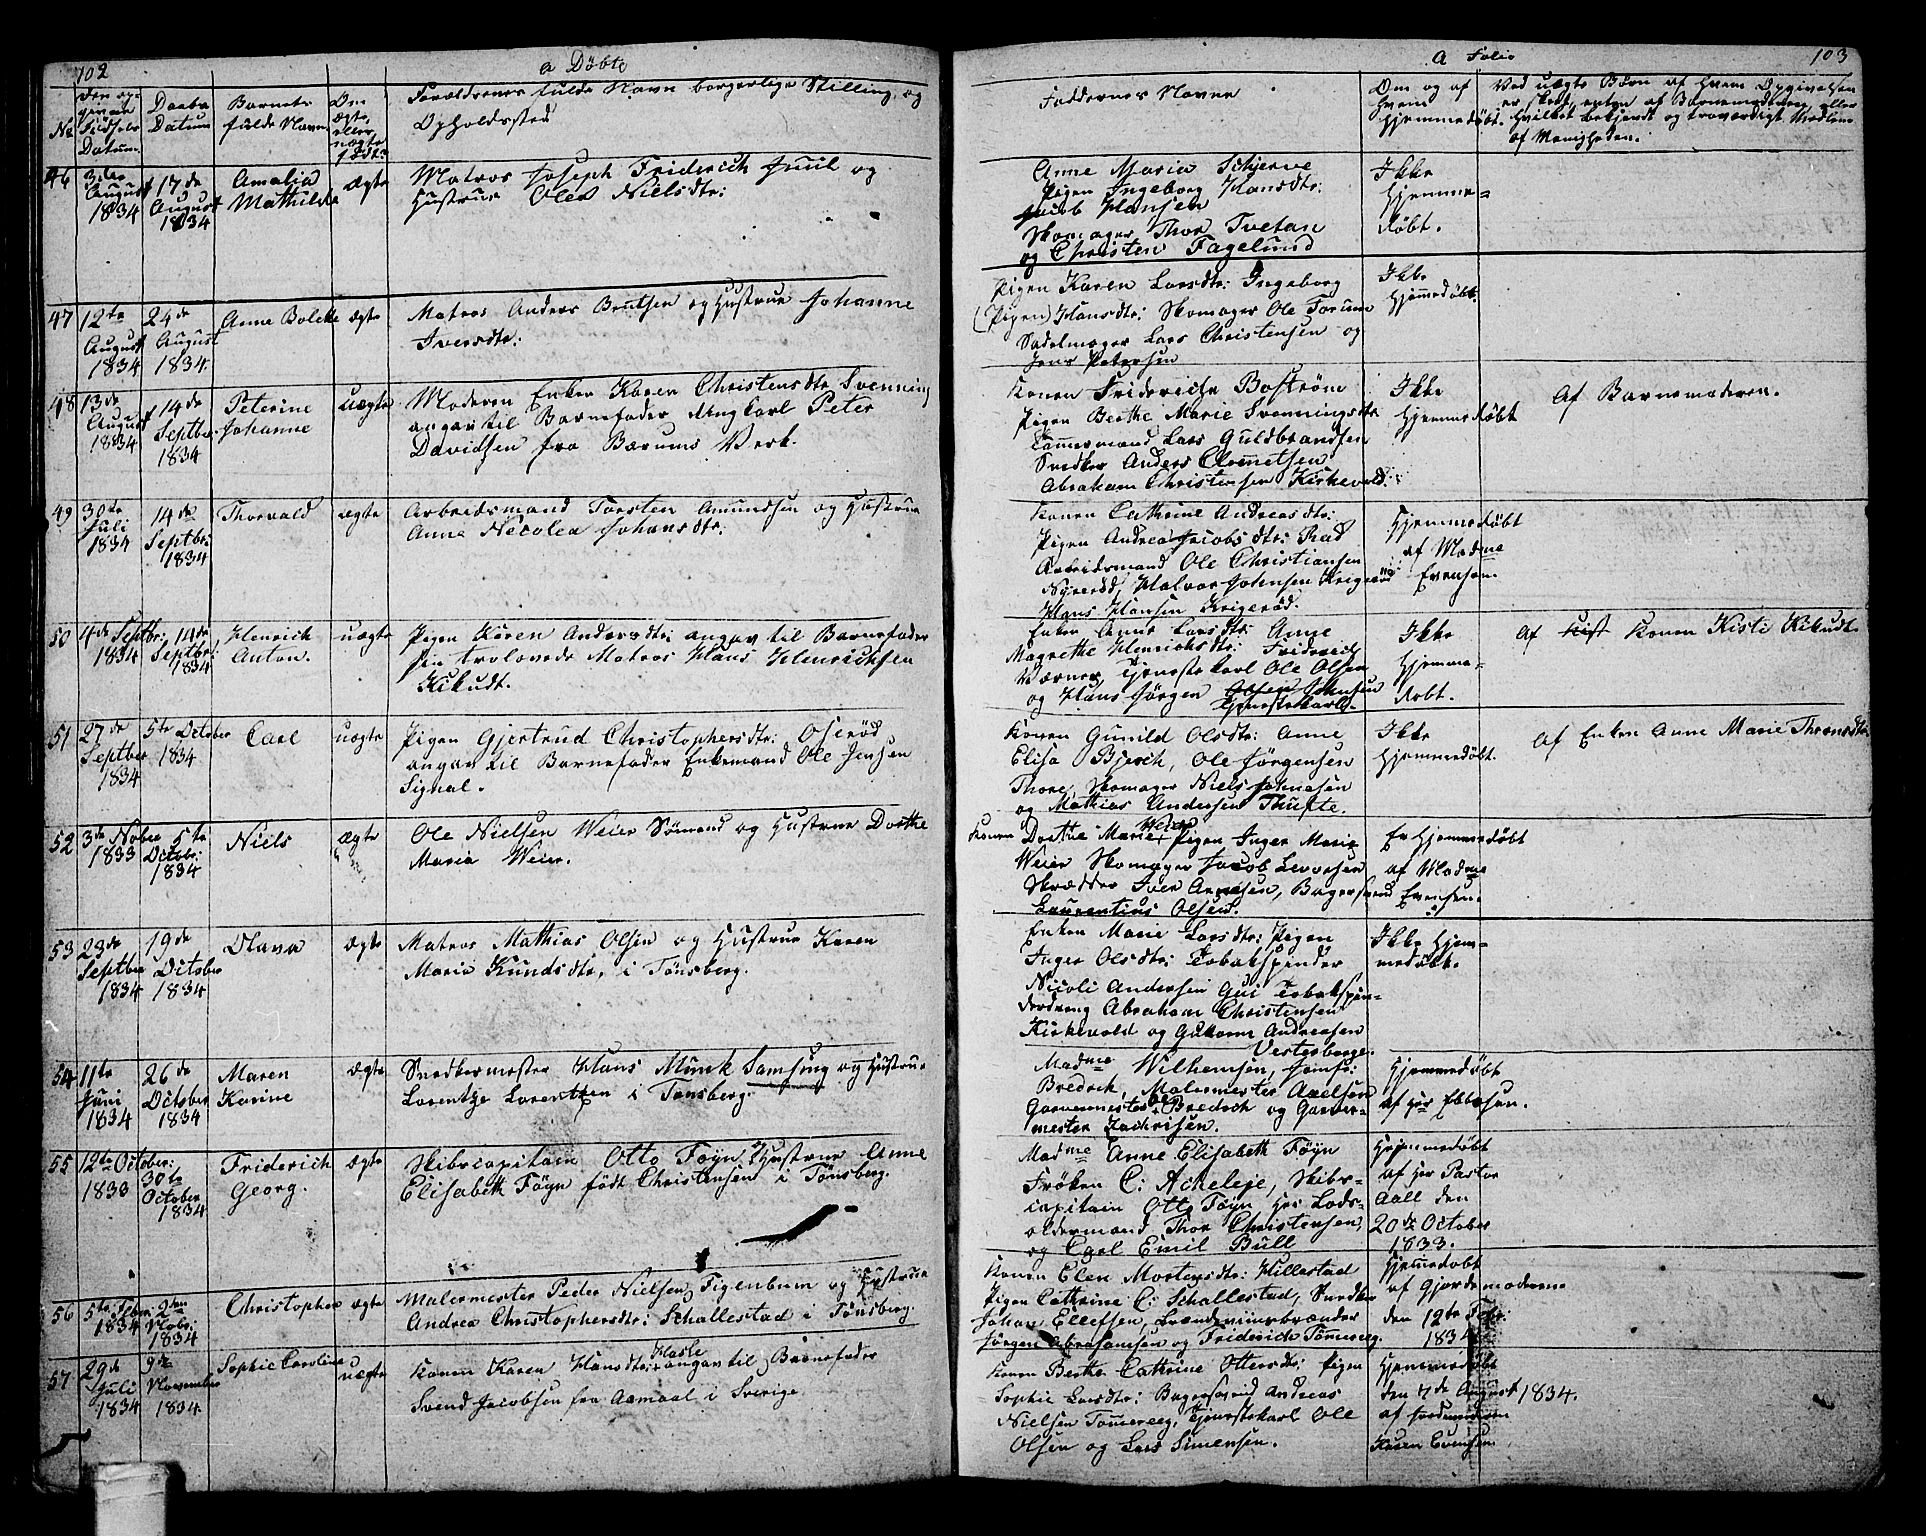 102
a Döbte
No
Den op-
givne
Födsels
Datum.
Daabs
Datum
Barnets
fulde Navn
Om
ægte
eller
uægte
födt
Forældrenes fulde Navn borgerlige Stilling og
Opholdssted
46
3die
August
1834
17de
August
1834
Amalia
Mathilde
ægte
Matros Joseph Friderich Juul og
Hustrue Olea Nielsdtr:
47
12te
August
1834
24de
August
1834.
Anne Bolette
ægte
Matros Anders Berntsen og Hustrue Johanne
Iversdtr:
48
13de
August
1834
14de
Septbr.
1834
Peterine
Johanne
uægte
Moderen Enke Karen Christensdtr Svenning
angav til Barnefader Ungkarl Peter
Davidsen fra Bærums Verk.
49
30te
Juli
1834
14de
Septbr:
1834
Thorvald
ægte
Arbeidsmand Torsten Amundsen og Hustrue
Anne Nicolea Johansdtr.
50
4de Septbr:
1834
14de
Septbr:
1834
Henrich
Anton.
uægte
Pigen Karen Andersdtr: angav til Barnefader
sin trolovede Matros Hans Henrichsen
Kikudt.
51
27de
Septbr
1834
5te October
1834
Carl
uægte
Pigen Gjertrud Christophersdtr: Oserød
angav til Barnefader Enkemand Ole Jensen
Signal.
52
3de Nober
1833
5te
Octobr:
1834
Niels
ægte
Ole Nielsen Weier Sömand og Hustrue Dorthe
Maria Weier.
53
23de
Septbr
1834
19de
October
1834
Olava
ægte
Matros Mathias Olsen og Hustrue Karen
Maria Kundsdtr, i Tönsberg.
54
11te
Juni
1834
26de
October
1834
Maren
Karine
ægte
Snedkermester Hans Munk Samsing og Hustrue
Lorentze Lorentzen i Tønsberg.
55
12te October:
1833
30te
October
1834
Friderich
Georg.
ægte
Skibscapitain Otto Föyn, Hustrue Anne
Elisabeth Föyn født Christensen i Tönsberg.
56
5te Febr
1834
2den
Nobr:
1834
Christopher
ægte
Malermester Peder Nielsen Figenbum og Hustrue
Andrea Christophersdtr: Schallestad i Tönsberg.
57
29de
Juli
1834
9de
November
1834.
Sophie Caroline
uægte
Konen Karen Hansdtr: Hasle angav til Barnefader
Svend Jacobsen fra Aamaal i Sverige
a Folio
103
Faddernes Navne
Om og af
hvem
hjemmedöbt.
Ved uægte Börn af hvem Opgivelsen
er skeet, enten af Barnemoderen, eller
hvilket bekjendt og troværdigt Medlem
af Menigheden.
Anne Maria Schjerve
Pigen Ingeborg Hansdtr:
Jacob Hansen
Skomager Thor Tvetan
og Christen Fagelund
Ikke
hjemme-
döbt.
Pigen Karen Larsdtr: Ingeborg
(Pigen) Hansdtr: Skomager Ole Forum
Sadelmager Lars Christensen og
Jens Petersen
Ikke
hjemedöbt.
Konen Friderikke Boström
Pigen Berthe Marie Svenningsdtr
Tömmermand Lars Guldbrandsen
Snedker Anders Clemetsen
Abraham Christensen Kirkevold.
Ikke
hjemmedöbt
Af Barnemoderen.
Konen Cathrine Andreasdtr:
Pigen Andrea Jacobsdtr: Rad
Arbeidsmand Ole Christiansen
Nyerød, Halvor Johnsen Krigerød
Hans Hansen Krigerød.
Hjemmedöbt
af Madme
Evensen.
Enken Anne Larsdtr: Anne
Magrethe Henrichsdtr: Friderich
Værner, Tjenestekarl Ole Olsen
og Hans Jörgen Olsen Johnsen
Tjenestekarle.
Ikke
hjemme-
döbt.
Af Kist Konen Kisti Kikudt
Konen Gunild Olsdtr: Anne
Elisa Bjerch, Ole Jörgensen
Thore, Skomager Niels Johnesen
og Mathias Andersen Thufte.
Ikke
hjemmedöbt.
Af Enken Anne Marie Thronsdtr
Konen Dorthe Marie Weier, Pigen Inger Marie
Weier Skomager Jacob Levorsen
Skrædder Iver Arnesen, Bagersvend
Laurentius Olsen.
Er hjemmedöbt
af Madme
Evensen.
Enken Marie Larsdtr: Pigen
Inger Olsdtr: Tobakspinder
Nicoli Andersen Gui Tobakspin-
derdreng Abraham Christensen
Kirkevold og Guttorm Andreasen
Vestesberge.
Ikke hjem-
medöbt.
Madme Wilhemsen, Jomfr:
Bredoch, Malermester Axelsen
Garvermester Ole Bredoch og Garver-
mester Zachrisen.
Hjemmedöbt
af Hr Ebbesen.
Madme Anne Elisabeth Föyn
Fröken C: Acheleje, Skibs-
capitain Otto Föyn, Hr: Lods-
oldermand Thor Christensen,
og Carl Emil Bull
Hjemmedöbt
af Her Pastor
Aall den
20de October
1833.
Konen Elen Mortensdtr: Hillestad
Pigen Cathrine C: Schallestad, Snedker
Johan Ellefsen, Brændeviinsbrænder
Jörgen Abrahamsen og Friderich Tömereg.
Hjemedöbt
af Gjordemoderen
den 12te Febr:
1834
Konen Berthe Cathrine Ottersdtr: Pigen
Sophie Larsdtr: Bagersvend Andreas
Nielsen Tömmereeg, Tjenestekarl Ole
Olsen og Lars Simensen.
Hjemmedöbt
den 7de August 1834.
af Jordemoderen
Karen Evensen